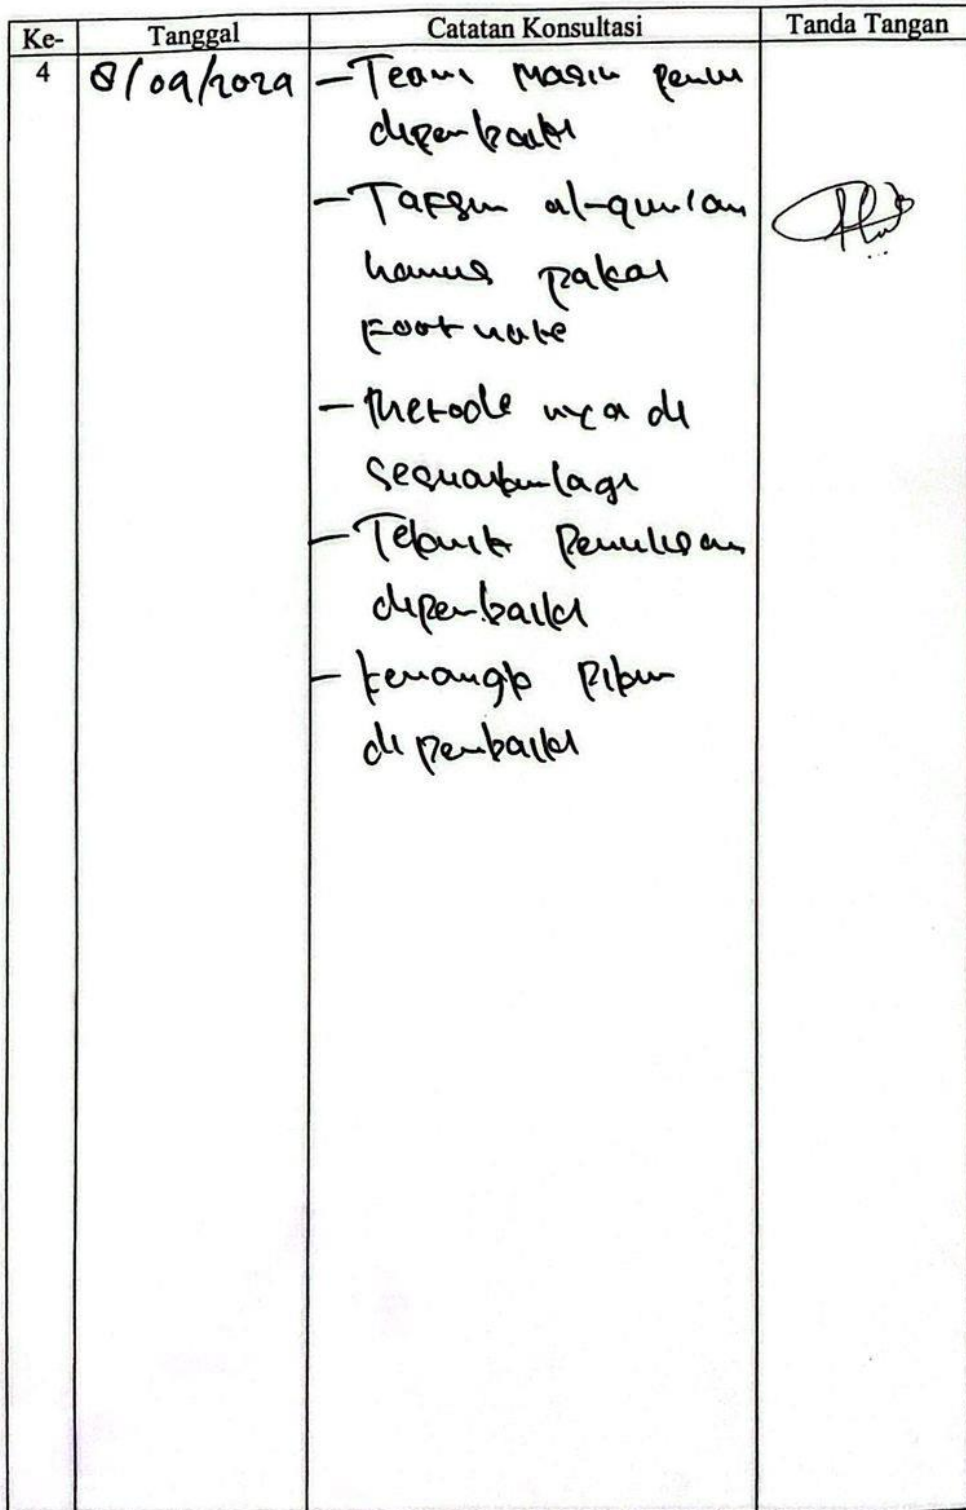 Ke- Tanggal Catatan Konsultasi Tanda Tangan
4 8/09/2024 - Teori masih perlu
diperbaiki
- Tafsir al-qur'an
harus pakai
Footnote
- Metode nya di
sesuaikan lagi
- Teknik Penulisan
diperbaiki
- kerangka Pikir
di perbaiki